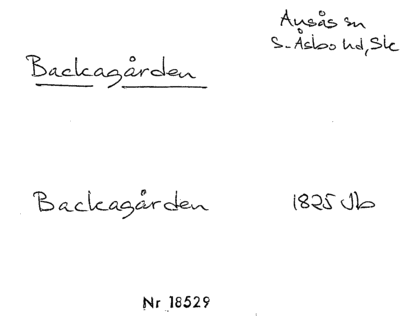 Ausås sn
S. Åsbo hd, Sk
Backagården
Backagården 1825 Jb
Nr 18529